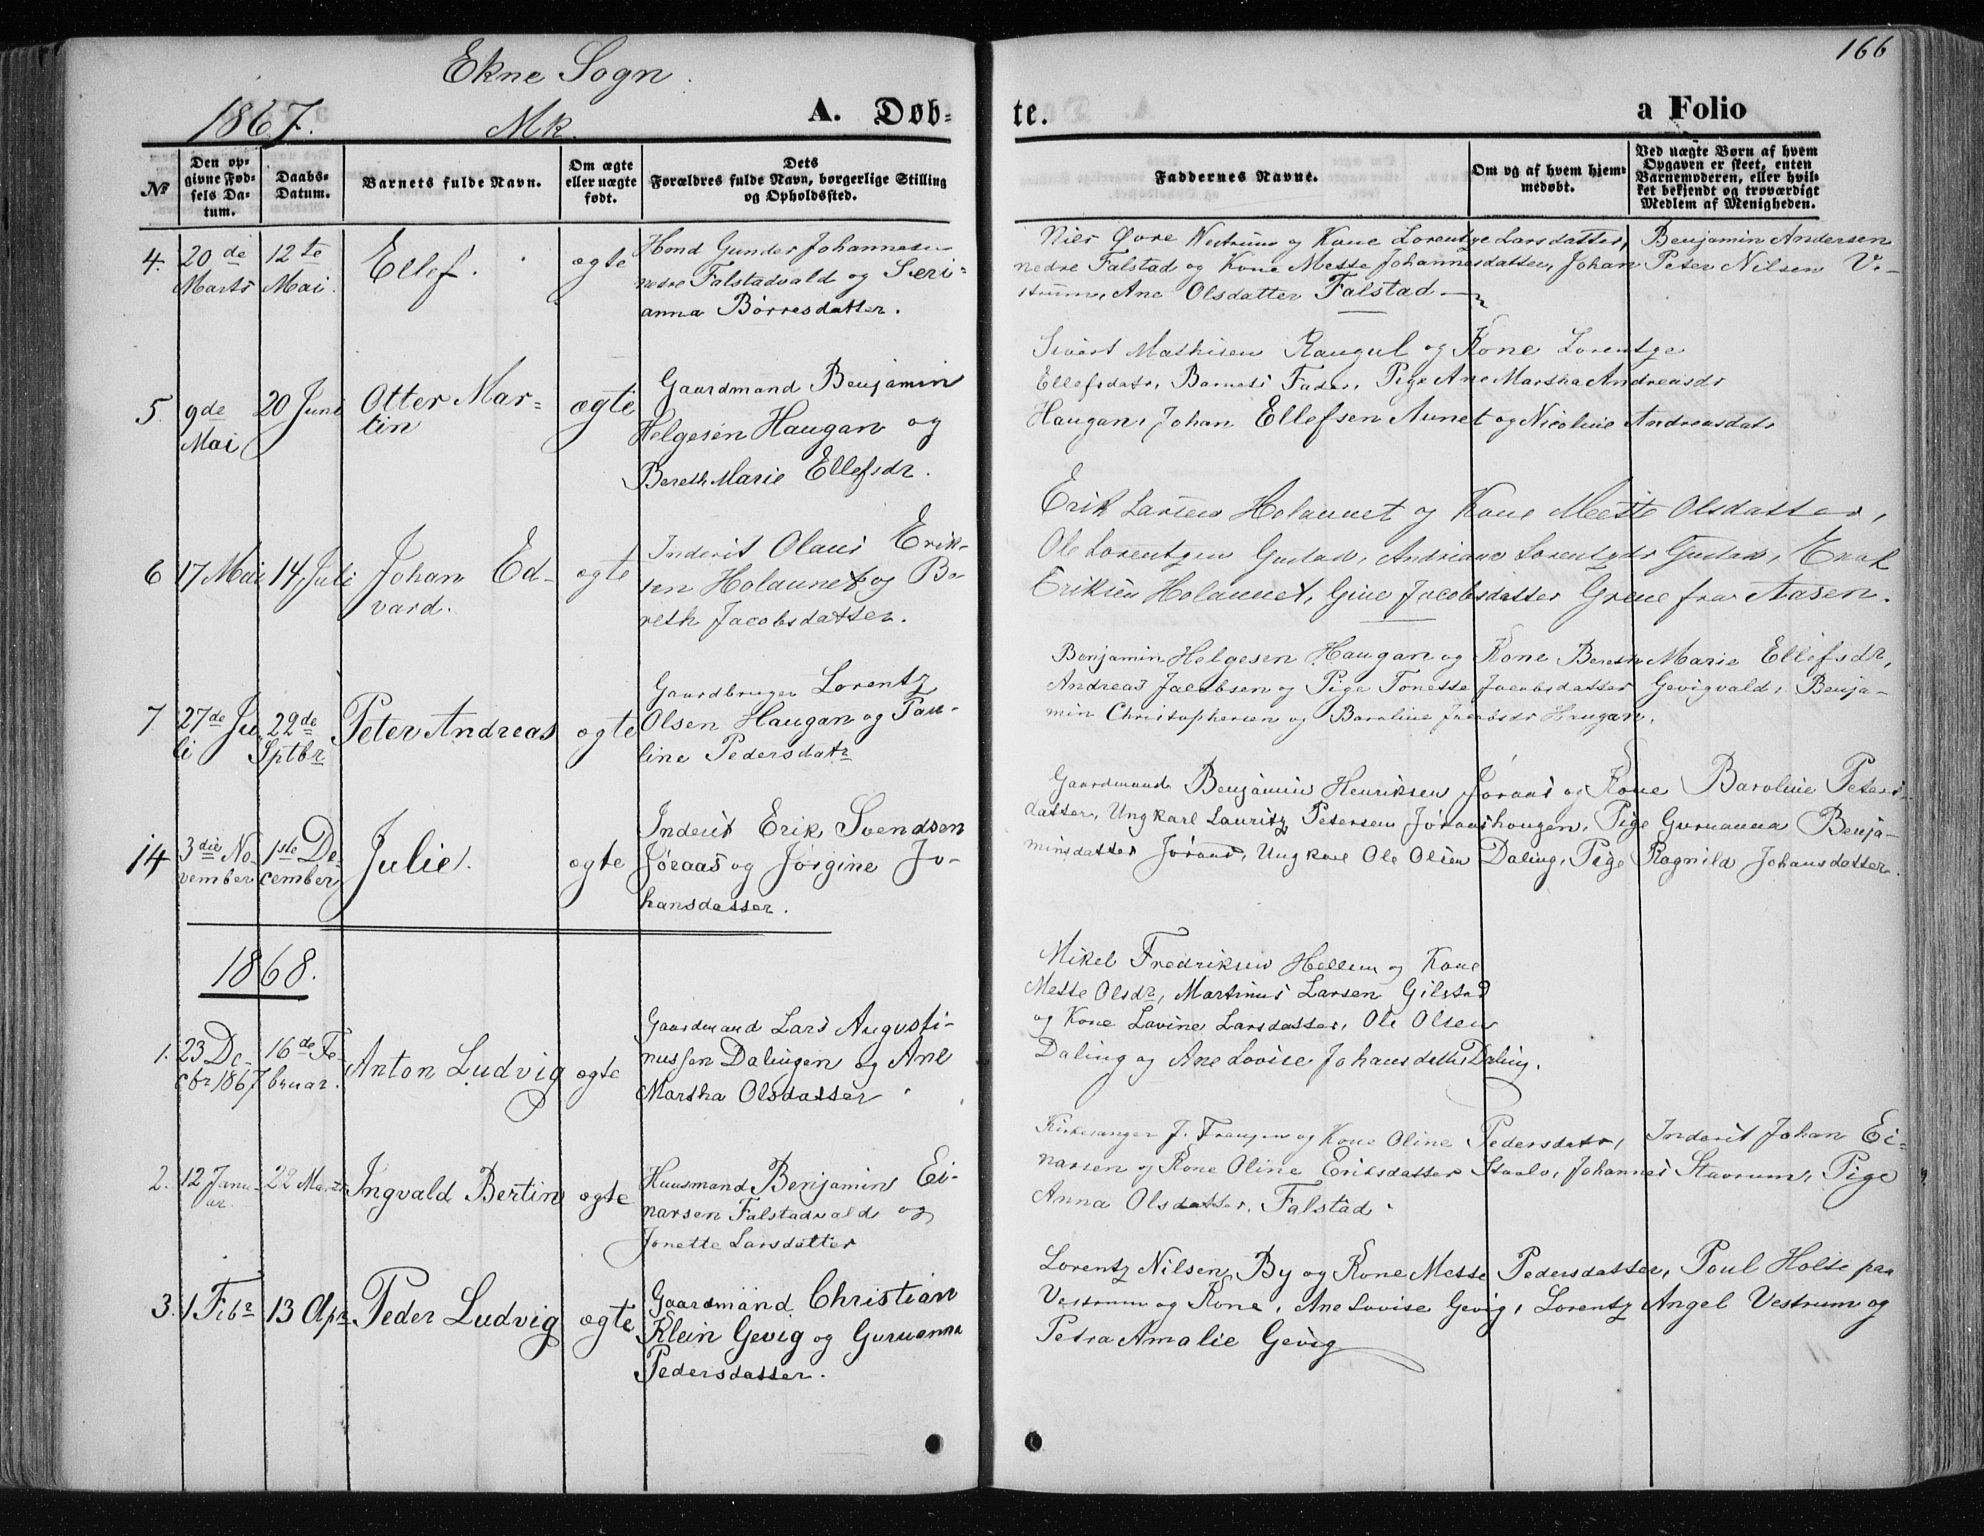 166
Ekne Sogn.
1867. Mk. A. Døb-
te. a Folio
No
Den op-
givne Fød-
sels Da-
tum.
Daabs-
Datum.
Barnets fulde Navn.
Om ægte
eller uægte
født.
Dets
Forældres fulde Navn, borgerlige Stilling
og Opholdssted.
Faddernes Navne.
Om og af hvem hjem-
medøbt.
Ved uægte Børn af hvem
Opgaven er skeet, enten
Barnemoderen, eller hvil-
ket bekjendt og troværdigt
Medlem af Menigheden.
4. 20de
Marts
12te
Mai.
Ellef.
ægte
Hmd Gunder Johannesen
nedre Falstadvald og Seri-
anna Børresdatter.
Niels Øvre Vestrum og Kone Lorentze Larsdatter, Benjamin Andersen
nedre Falstad og Kone Mette Johannesdatter, Johan Peter Nilsen Ve-
strum, Ane Olsdatter Falstad
5. 9de
Mai
20 Juni
Otter Mar-
tin
ægte
Gaardmand Benjamin
Helgesen Haugan og
Bereth Marie Ellefsdr.
Sivert Mathisen Raugul og Kone Lorentze
Ellefsdatr, Barnets Fader, Pige Ane Martha Andreasdr
Haugan, Johan Ellefsen Aunet og Nicoline Andreasdatr
6 17 Mai 14 Juli
Johan Ed-
vard.
ægte
Inderst Olaus Erik-
sen Holaunet og Be-
reth Jacobsdatter.
Erik Larsen Holaunet og Kone Mette Olsdatter,
Ole Lorentzen Gustad, Andriane Lorentzdr Gustad, Erik
Eriksen Holaunet, Gine Jacobsdatter Grene fra Aasen.
7 27de Ju-
li
29de
Sptbr
Peter Andreas
ægte
Gaardbruger Lorentz
Olsen Haugan og Pau-
line Pedersdatr
Benjamin Helgesen Haugan og Kone Bereth Marie Ellefsdr,
Andreas Jacobsen og Pige Tonette Jacobsdatter Gevigvald, Benja-
min Christophersen og Baroline Jacobsdr Haugan.
14 3die No-
vember
1ste De-
cember
Julie.
ægte
Inderst Erik Svendsen
Jøraas og Jørgine Jo-
hansdatter.
Gaardmand Benjamin Henriksen Jøraas og Kone Baroline Peters-
datter, Ungkarl Lauritz Petersen Jøraashougen, Pige Guruanna Benja-
minsdatter Jøraas, Ungkarl Ole Olsen Daling, Pige Ragnild Johansdatter.
1868.
1. 23 De-
cbr 1867
16de Fe-
bruar.
Anton Ludvig
ægte
Gaardmand Lars Augusti-
nussen Dalingen og Ane
Martha Olsdatter
Mikel Fredriksen Hellem og Kone
Mette Olsdr, Martinus Larsen Gilstad
og Kone Lovine Larsdatter, Ole Olsen
Daling og Ane Lovise Johansdatter Daling.
2. 12 Janu-
ar.
22 Marts
Ingvald Bertin
ægte
Huusmand Benjamin Ei-
narsen Falstadvald og
Jonette Larsdatter
Kirkesanger J. Franzen og Kone Oline Pedersdatr, Inderst Johan Ei-
narsen og Kone Oline Eriksdatter Staalv, Johannes Stavrum, Pige
Anna Olsdatter, Falstad.
3. 1 Febr 13 Apr.
Peder Ludvig
ægte
Gaardmand Christian
Klein Gevig og Guruanna
Pedersdatter.
Lorentz Nilsen By og Kone Mette Pedersdatter, Poul Holte paa
Vestrum og Kone, Ane Lovise Gevig, Lorentz Angel Vestrum og
Petra Amalie Gevig